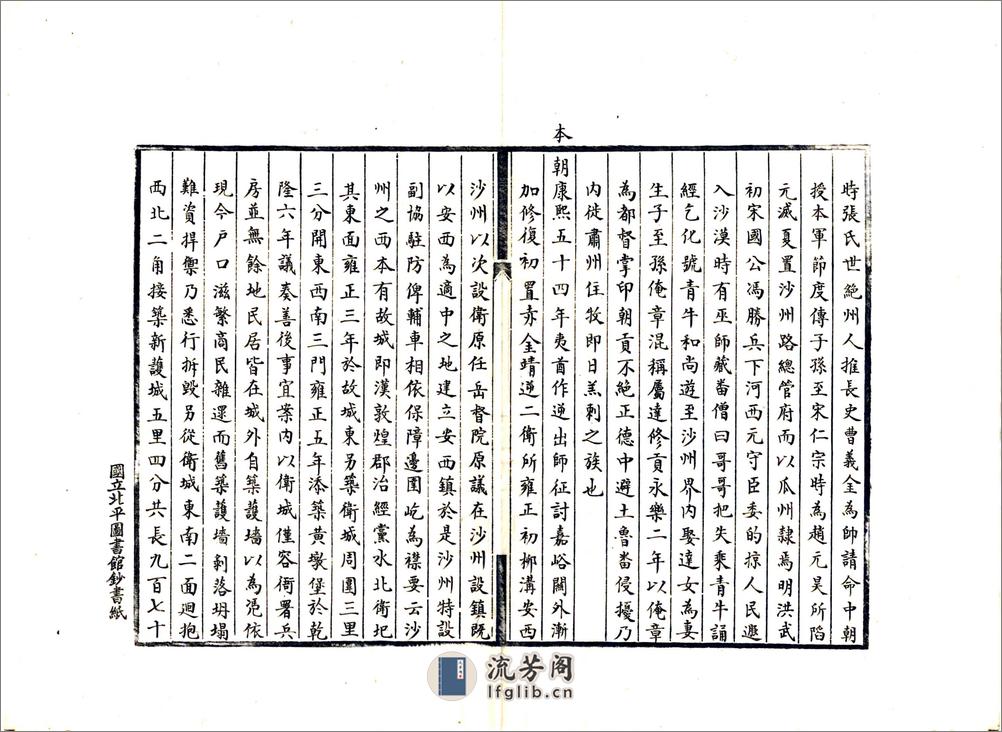 時張氏世絶州人推長史曹義全為帥請命中朝
授本軍節度傳子孫至宋仁宗時為趙元昊所陷
元滅夏置沙州路總管府而以瓜州隸焉明洪武
初宋國公馮勝兵下河西元守臣委的掠人民遯
入沙漠時有巫師藏畨僧曰哥哥把失乘青牛誦
經乞化號青牛和尚遊至沙州界内娶達女為妻
生子至孫俺章混稱屬達修貢永樂二年以俺章
為都督掌印朝貢不絶正德中避土魯畨侵擾乃
内徙肅州住牧即日羔剌之族也
本
朝康熙五十四年夷酋作逆出師征討嘉峪關外漸
加修復初置赤金靖逆二衛所雍正初柳溝安西
沙州以次設衛原任岳督院原議在沙州設鎮既
以安西為適中之地建立安西鎮於是沙州特設
副協駐防俾輔車相依保障邊圉屹為襟要云沙
州之西本有故城即漢敦煌郡治經黨水北衝圯
其東面雍正三年於故城東另築衛城周圍三里
三分開東西南三門雍正五年添築黄墩堡於乾
隆六年議奏善後事宜案内以衛城僅容衙署兵
房並無餘地民居皆在城外自築護墻以為憑依
現今户口滋繁商民雜遝而舊築護墻剥落坍塌
難資捍禦乃悉行拆毁另從衛城東南二面廻抱
西北二角接築新護城五里四分共長九百七十
國立北平圖書館鈔書紙
流芳阁
lfglib.cn